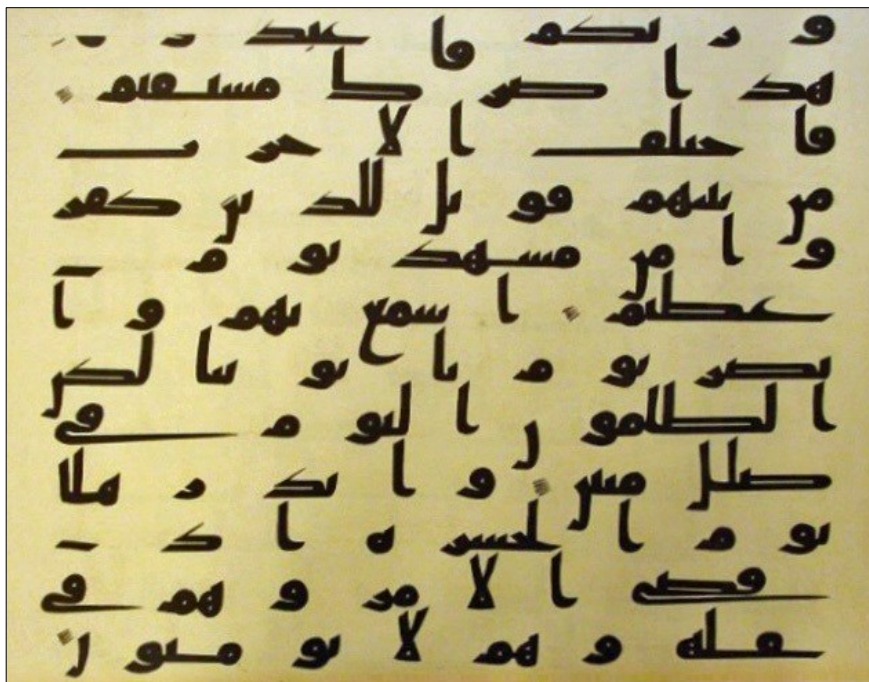 وربكم فاعبدوه
هذا صرط مستقيم
فاختلف الاحزب
من بينهم فويل للذين كفر
وا من مشهد يوم
عظيم اسمع بهم وا
بصر يوم ياتوننا لكن
الظلمون اليوم في
ضلل مبين وانذرهم
يوم الحسرة اذ
قضي الامر وهم في
غفلة وهم لا يومنون